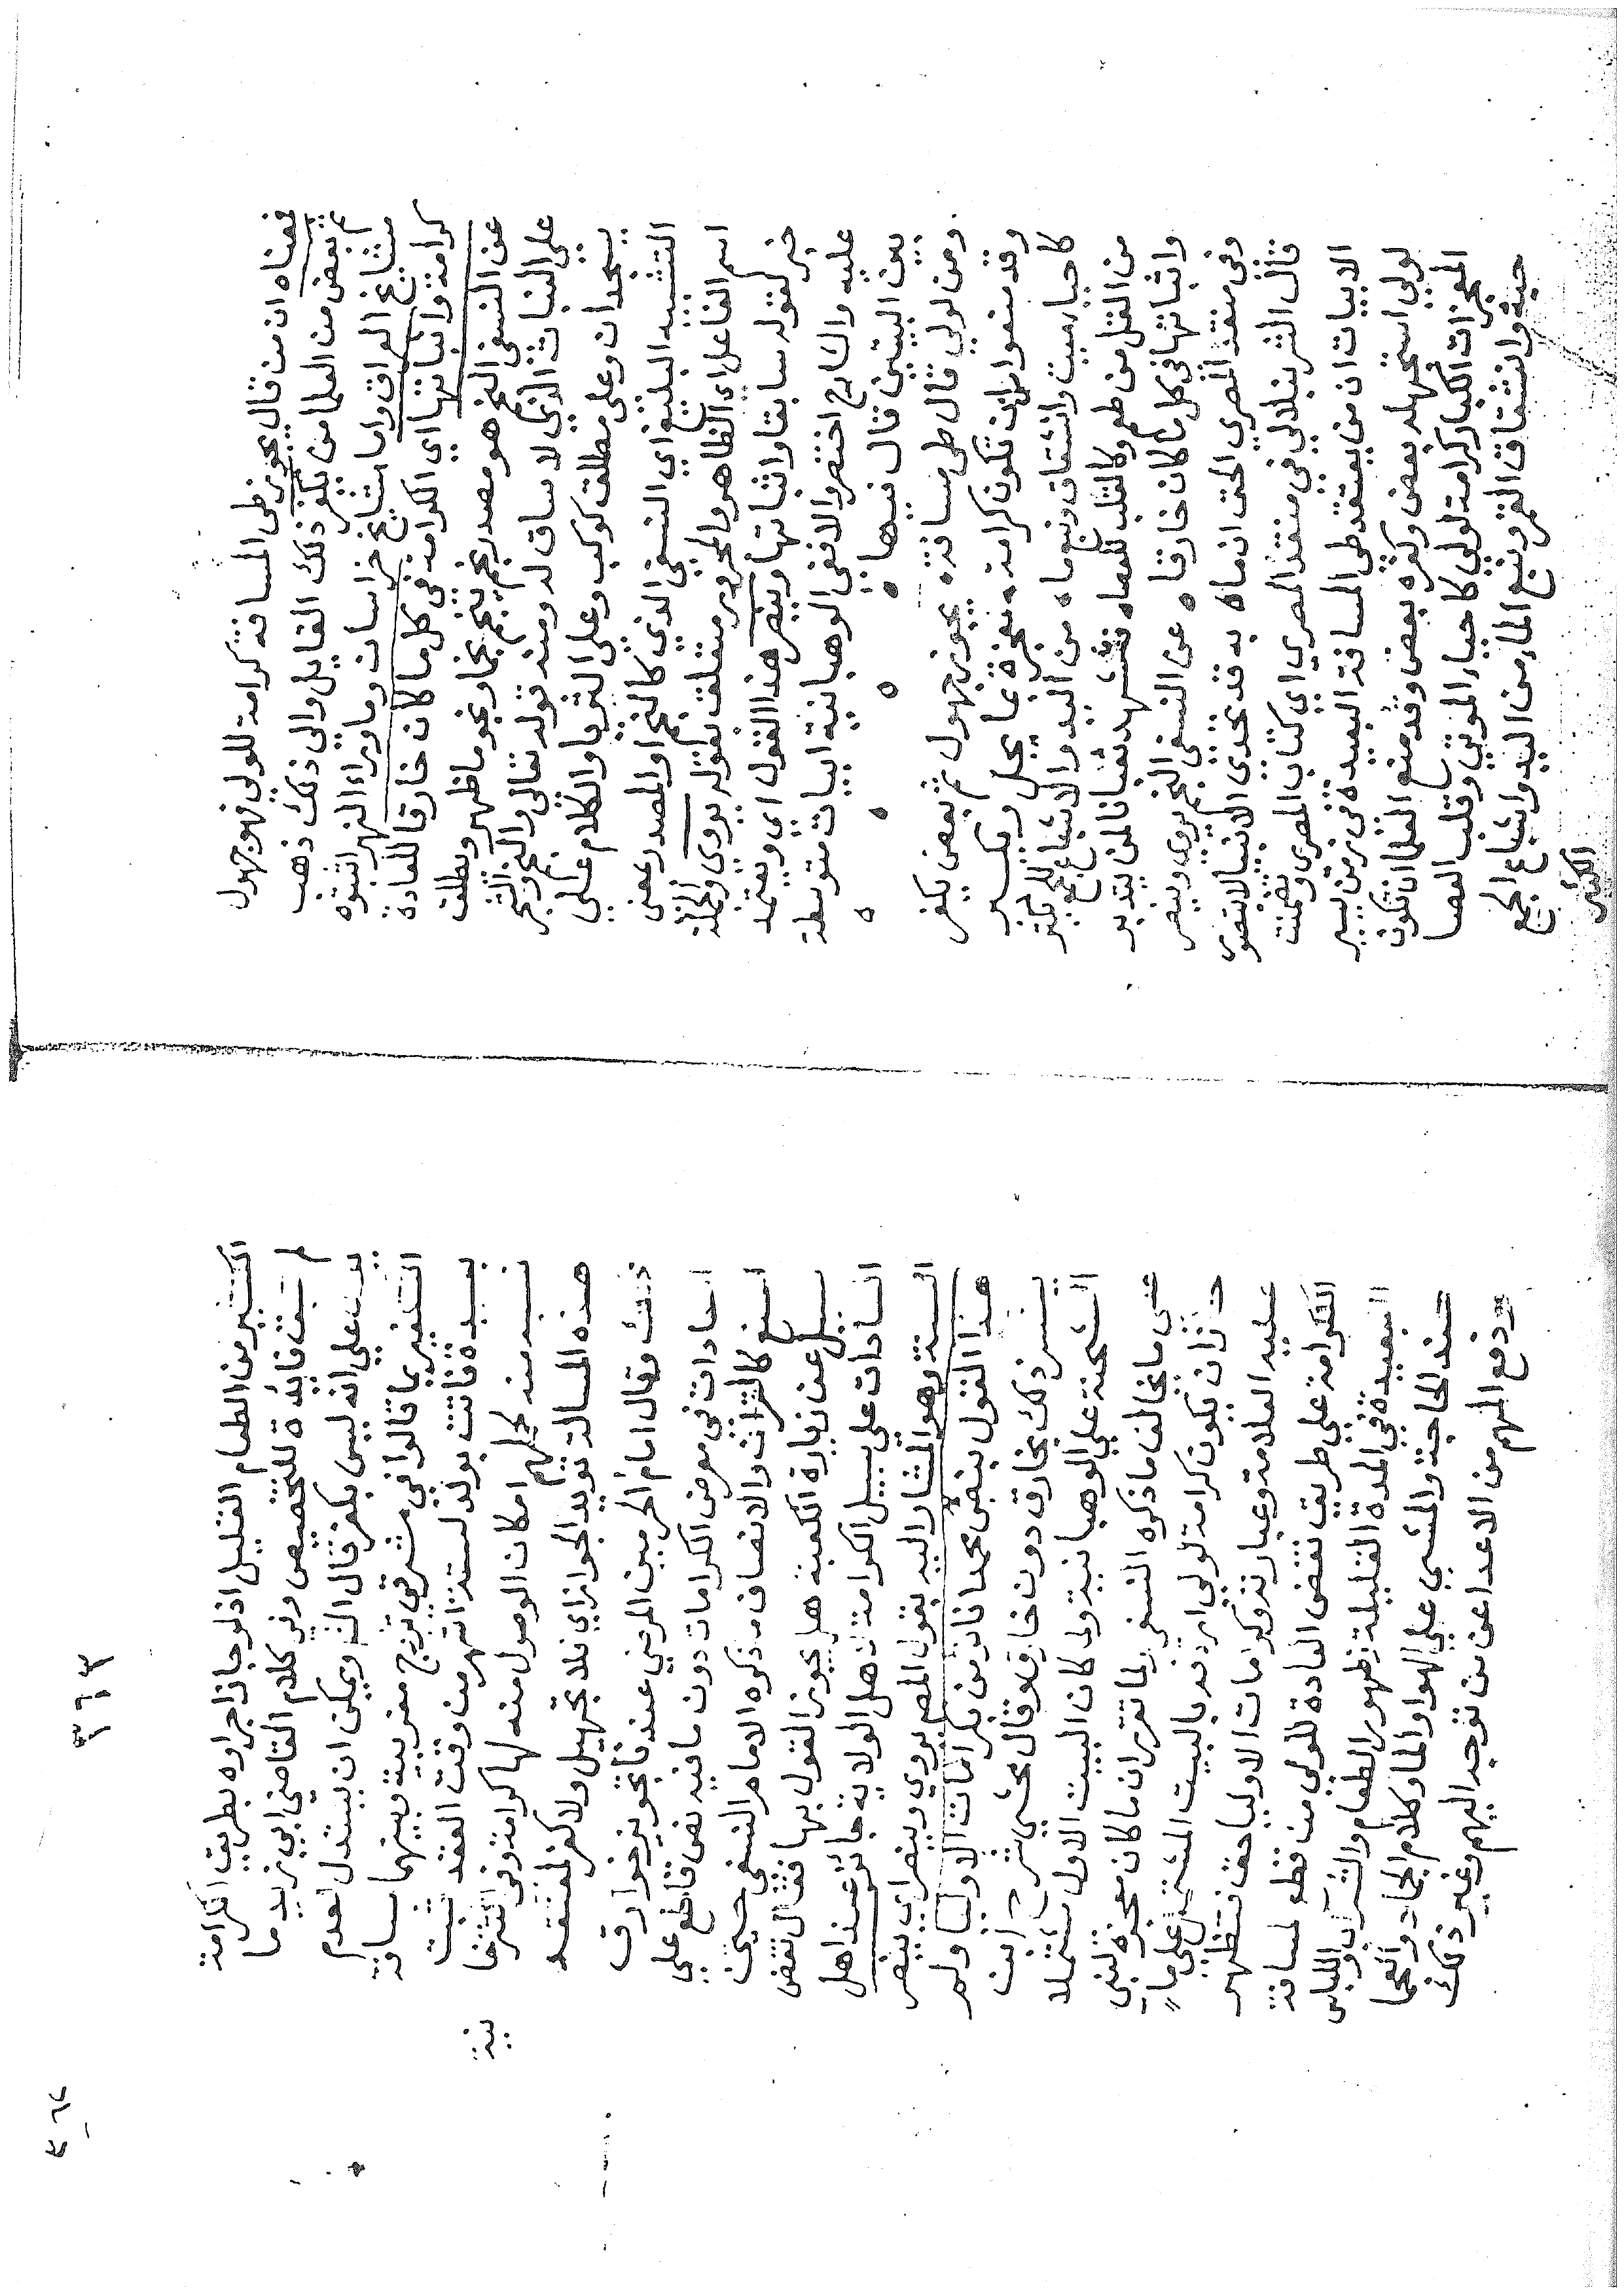 فمعناه ان من قال يجوز طي المسافة كرامة للولي فهو جهول
ثم بعض من العلما من يكفر ذلك القايل والى ذلك ذهب
مشايخ العراق واما مشايخ خراسان وما وراء النهر اثبتوه
كرامة واثباتها اي الكرامة في كل ما كان خارقا للعادة
عن النسفي النجم هو مصدر نجم ينجم نجما ونجوما ظهر ويطلق
على النبات الذي لا ساق له ومنه قوله تعالى والنجم والشجر
يسجدان وعلى مطلق كوكب وعلى الثريا والكلام على
التشبيه البليغ اي النسفي الذي كالنجم او المصدر بمعنى
اسم الفاعل اي الظاهر والمجرور متعلق بقوله يروى والجملة
خبر لقوله سابقا واثباتها وينصر هذا القول اي ويعتمد
عليه والشارح اختصر والا ففي الوهبانية ابيات متوسطة
بين البيتين قال فيها ه ه ه ه
ومن لولي قال طي مسافة ه يجوز جهول ثم بعض يكفر
وقد منعوا من ان تكون كرامة ه بمعجزة بما يجل ويكسر
كاحياء ميت وانشقاق ونبع ماه من اليد والاشباع للجمع يكثر
من القل من طعم وكالقلب للعصاه فتشهد ثعبانا لمن يتدبر
واثباتها في كل ما كان خارقا ه عن النسفي النجم يروى وينصر
وفي منتقد المصري الحق ان ماه به قد تحدى الانبيا لا يتصور
قال الشرنبلالي في منتقد المصري اي كتاب المصري وتضمنت
الابيات ان من يعتقد طي المسافة البعيدة في زمن يسير
لولي استجهله بعض وكفره بعض وقد منع العلما ان تكون
المعجزات الكبار كرامة لولي كاحياء الموتى وقلب العصا
حية وانشقاق القمر ونبع الماء من اليد واشباع الجمع
الكثير
٣٦٣
الكثير من الطعام القليل اذ لو جاز اجراوه بطريق الكرامة
سبقت فايدة للتخصيص وفي كلام القاضي ابي زيد ما
يدل على انه ليس بكفر قال الش ويمكن ان يستدل لعدم
التكفير بما قالوا في مشرقي تزوج مغربية وبينهما مسافة
بعيدة فاتت بولد لستة اشهر من وقت العقد يثبت
نسبه منه لجعلهم امكان الوصول منه لها كرامة وفي التترخا
نية
هذه المسالة تويد الجواز اي فلا تجهيل ولا كفر لمعتقد
ذلك وقال امام الحرمين المرضي عندنا تجويز خوارق
العادات في معرض الكرامات دون ما فيه نص قاطع على
المنع كالقران والانصاف ما ذكره الامام النسفي حين
سيل عن زيارة الكعبة هل يجوز القول بها فقال نقض
العادات على سبيل الكرامة لاهل الولاية جائز عند اهل
السنة وهو المشار اليه بقول المص يروى وينصر اي ينصر
هذا القول بنص محمد انا نومن بكرامات الاوليا ولم
يفسر ذلك بخارق دون خارق وقال محشي شرح ابن
الشحنة على الوهبانية ولما كان البيت الاول مشتملا
على ما يخالف ما ذكره النسفي ولما تقرر ان ما كان معجزة لنبي
جاز ان يكون كرامة لولي اردفه بالبيت المشتمل على ما
عليه العلامة وعبارته وكرامات الاوليا حق فتظهر
الكرامة على طريق نقض العادة للولي من قطع المسافة
البعيدة في المدة القليلة وظهور الطعام والشراب واللباس
عند الحاجة والمشي على الهوا والماء وكلام الجماد والعجما
ودفع المتوجه من الاعدا عمن توجه اليهم وغير ذلك